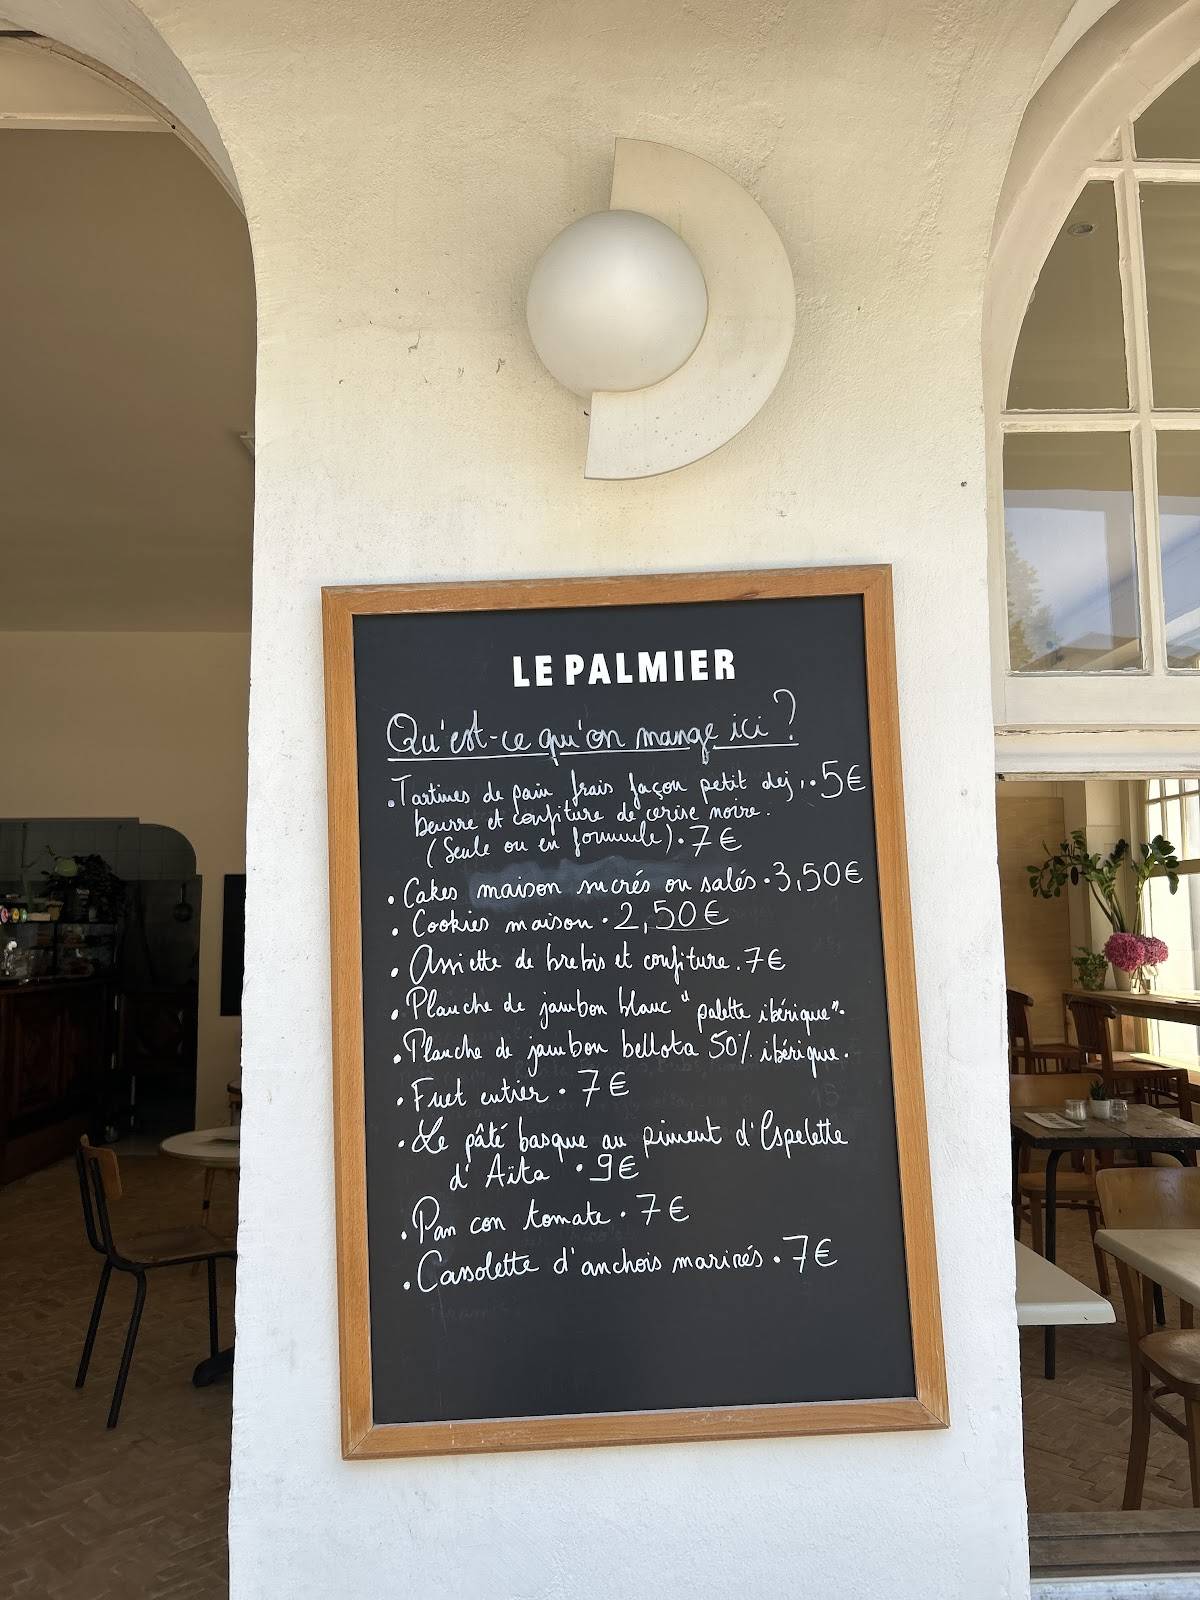 LE PALMIER
Qu'est-ce qu'on mange ici ?
• Tartines de pain frais façon petit dej, • 5€
beurre et confiture de cerise noire.
(Seule ou en formule) • 7€
• Cakes maison sucrés ou salés • 3,50€
• Cookies maison • 2,50€
• Assiette de brebis et confiture • 7€
• Planche de jambon blanc "palette ibérique" •
• Planche de jambon bellota 50% ibérique •
• Fuet entier • 7€
• Le pâté basque au piment d'Espelette
d'Aïta • 9€
• Pan con tomate • 7€
• Cassolette d'anchois marinés • 7€